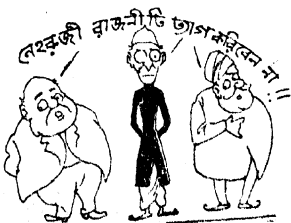 নেহরুজী রাজনীতি ত্যাগ করিবেন না!!